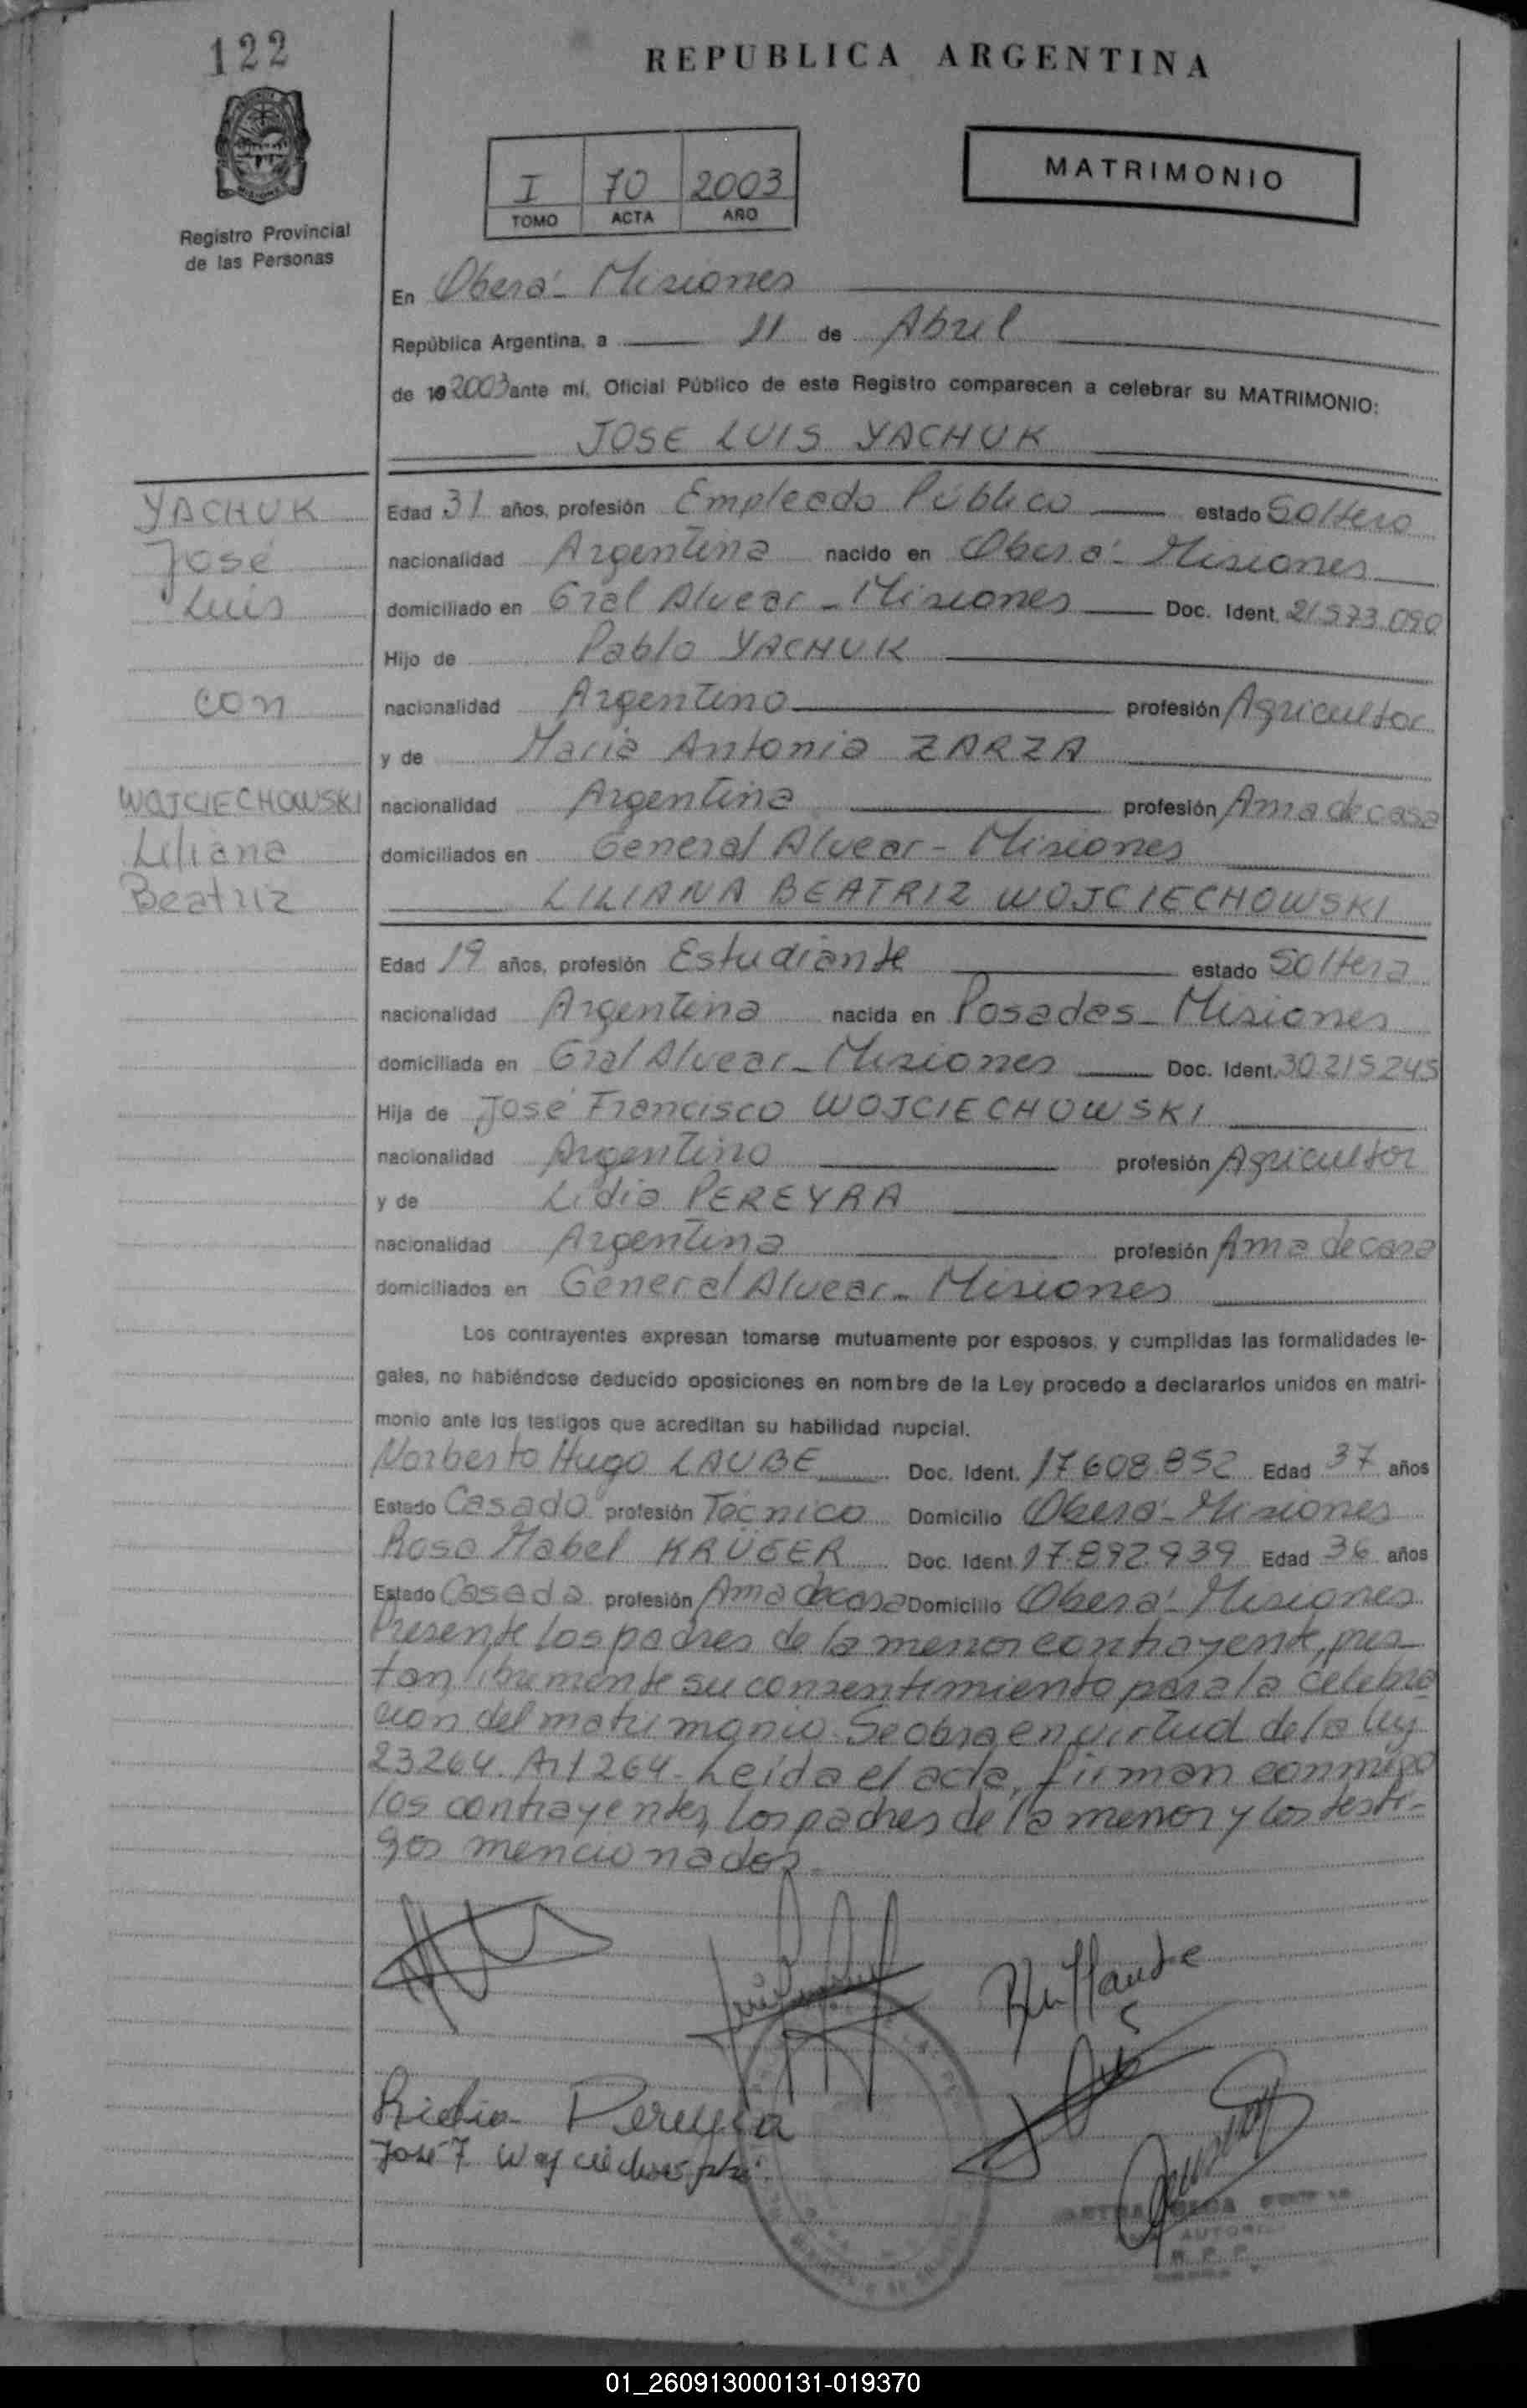 122
REPUBLICA ARGENTINA
MATRIMONIO
I 70 2003
TOMO ACTA AÑO
Registro Provincial
de las Personas
En Oberá - Misiones
República Argentina, a 11 de Abril
de 19 2003 ante mí, Oficial Público de este Registro comparecen a celebrar su MATRIMONIO:
JOSE LUIS YACHUK
YACHUK
José
Luis
con
WOJCIECHOWSKI
Liliana
Beatriz
Edad 31 años, profesión Empleado Público estado Soltero
nacionalidad Argentina nacido en Oberá - Misiones
domiciliado en Gral Alvear - Misiones Doc. Ident. 21573.090
Hijo de Pablo YACHUK
nacionalidad Argentino profesión Agricultor
y de Maria Antonia ZARZA
nacionalidad Argentina profesión Ama de casa
domiciliados en General Alvear - Misiones
LILIANA BEATRIZ WOJCIECHOWSKI
Edad 19 años, profesión Estudiante estado Soltera
nacionalidad Argentina nacida en Posadas - Misiones
domiciliada en Gral Alvear - Misiones Doc. Ident. 30.215245
Hija de José Francisco WOJCIECHOWSKI
nacionalidad Argentino profesión Agricultor
y de Lidia PEREYRA
nacionalidad Argentina profesión Ama de casa
domiciliados en General Alvear - Misiones
Los contrayentes expresan tomarse mutuamente por esposos, y cumplidas las formalidades le-
gales, no habiéndose deducido oposiciones en nombre de la Ley procedo a declararlos unidos en matri-
monio ante los testigos que acreditan su habilidad nupcial.
Norberto Hugo LAUBE Doc. Ident. 17.608.852 Edad 37 años
Estado Casado profesión Técnico Domicilio Oberá - Misiones
Rosa Mabel KRÜGER Doc. Ident 17.892.939 Edad 36 años
Estado Casada profesión Ama de casa Domicilio Oberá - Misiones
Presente los padres de la menor contrayente, pres-
tan libremente su consentimiento para la celebra
cion del matrimonio. Se obra en virtud de la ley
23264. Art 264 - Leída el acta, firman conmigo
los contrayentes, los padres de la menor y los testi-
gos mencionados.
Lidia Pereyra
José F Wojciechowski
01_260913000131-019370